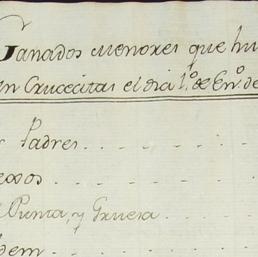 Ganados menores que hu
en Crucecitas el dia 1.º de En.º de
Padres
Punta, y Gruesa
dem